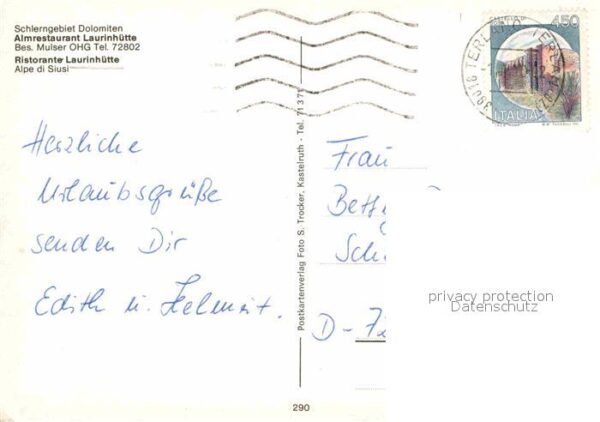 Schlerngebiet Dolomiten
Almrestaurant Laurinhütte
Bes. Mulser OHG Tel. 72802
Ristorante Laurinhütte
Alpe di Siusi
450
ITALIA
39018 TERLANO
Herzliche
Urlaubsgrüße
senden Dir
Edith u. Helmut.
Postkartenverlag Foto S. Trocker, Kastelruth - Tel. 71371
Frau
Bett
Sch
D-7
privacy protection
Datenschutz
290